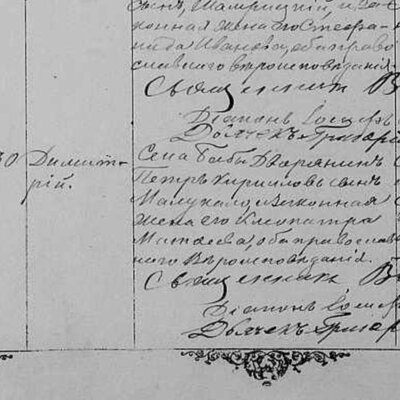 сынъ, Шамрицкій, и за-
конная жена его Стефа-
нида Иванова, оба право-
славнаго вѣроисповѣданія.
Священникъ В
Діаконъ Іосифъ
Дьячекъ Григорій
30
Димит-
рій.
Села Бабы Дворянинъ
Петръ Кирилловъ сынъ
и законная
жена его Клеопатра
Матвѣева, оба православ-
наго Вѣроисповѣданія.
Священникъ В
Діаконъ Іосифъ
Дьячекъ Григор